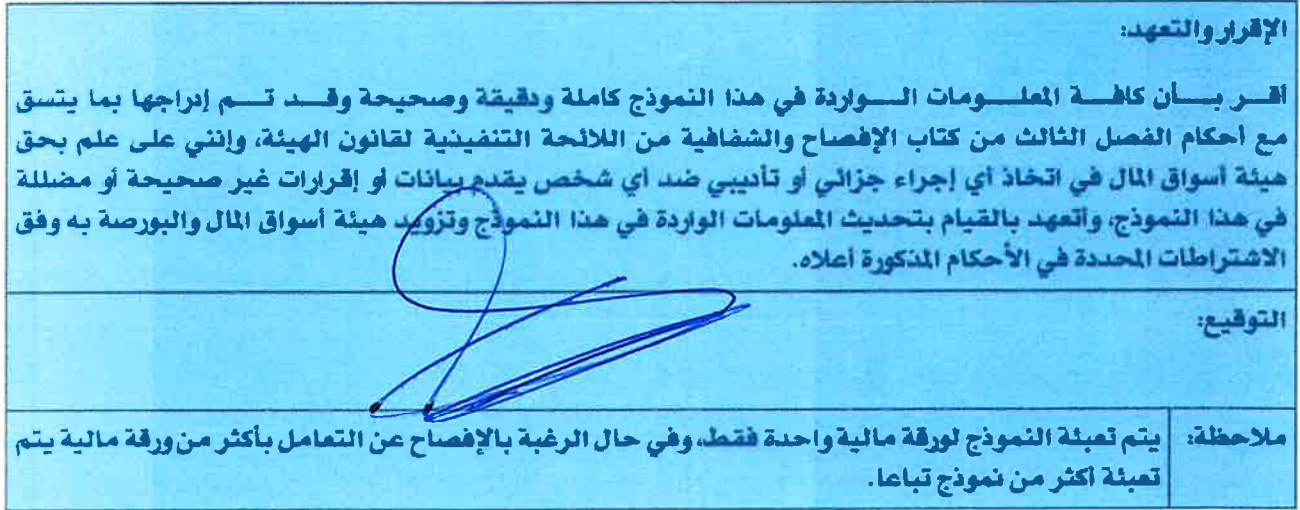 الإقرار والتعهد:
أقــر بــــأن كافــــة المعلــــومات الــــواردة في هذا النموذج كاملة ودقيقة وصحيحة وقــــد تــــم إدراجها بما يتسق
مع أحكام الفصل الثالث من كتاب الإفصاح والشفافية من اللائحة التنفيذية لقانون الهيئة، وإنني على علم بحق
هيئة أسواق المال في اتخاذ أي إجراء جزائي أو تأديبي ضد أي شخص يقدم بيانات أو إقرارات غير صحيحة أو مضللة
في هذا النموذج، وأتعهد بالقيام بتحديث المعلومات الواردة في هذا النموذج وتزويد هيئة أسواق المال والبورصة به وفق
الاشتراطات المحددة في الأحكام المذكورة أعلاه.
التوقيع:
ملاحظة: يتم تعبئة النموذج لورقة مالية واحدة فقط، وفي حال الرغبة بالإفصاح عن التعامل بأكثر من ورقة مالية يتم
تعبئة أكثر من نموذج تباعا.